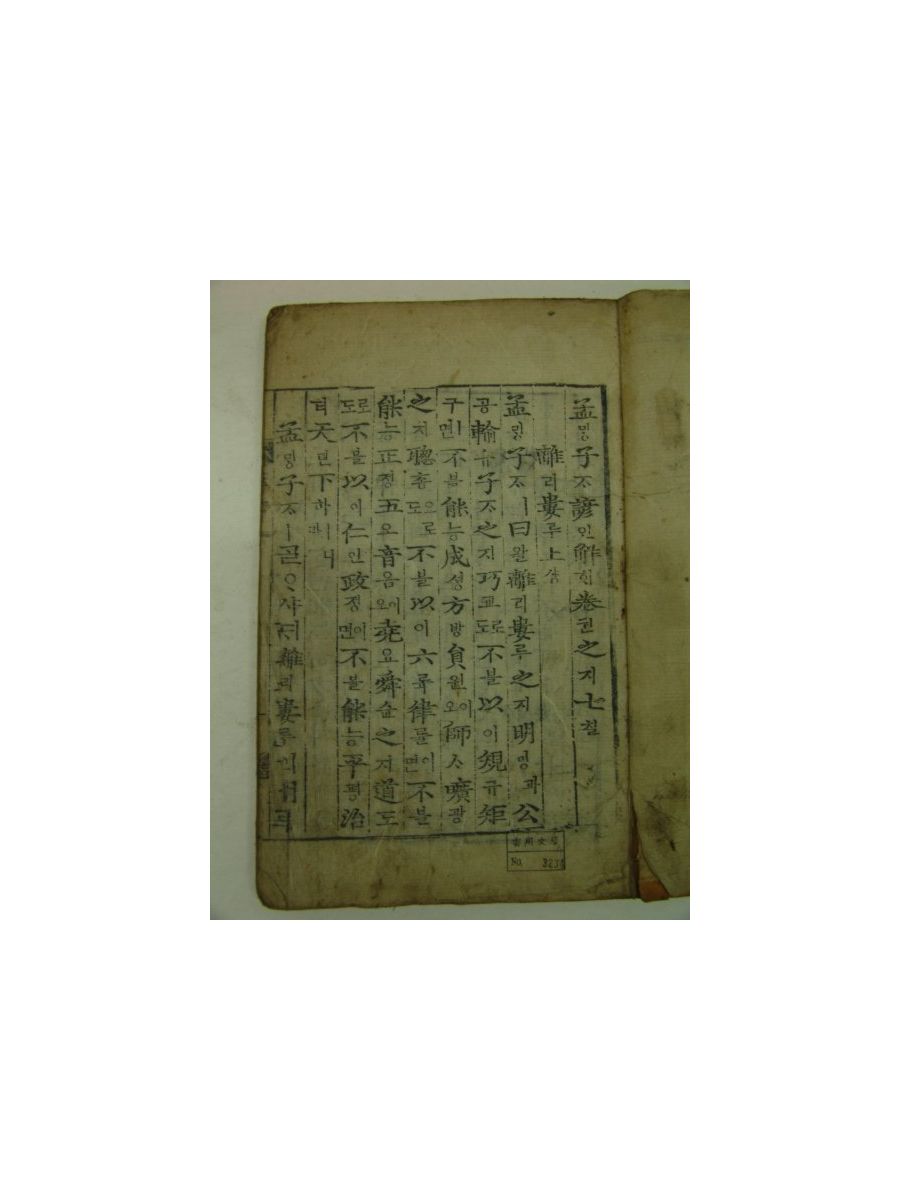 孟밍子ᄌᆞ諺언解ᄒᆡ卷권之지七칠
離리婁루上샹
孟ᄆᆡᆼ子ᄌᆞㅣ曰왈離리婁루之지明명과公
공輸슈子ᄌᆞ之지巧교로도不블以이規규矩
구ㅣ면不블能능成셩方방員원이오師ᄉᆞ曠광
之지聰총으로도不블以이六륙律률이면不블
能능正졍五오音음이오堯요舜슌之지道도
로도不블以이仁인政졍이면不블能능平평治
티天텬下하ㅣ니라
孟ᄆᆡᆼ子ᄌᆞㅣᄀᆞᆯᄋᆞ샤ᄃᆡ離리婁루의
No. 323